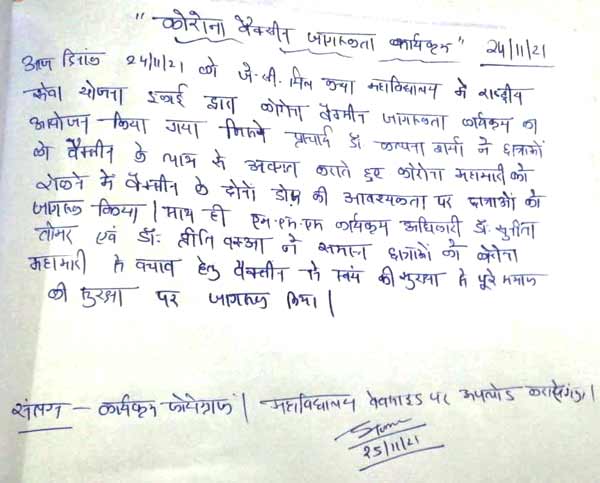 "कोरोना वैक्सीन जागरूकता कार्यक्रम" 24/11/21
आज दिनांक 24/11/21 को जे.सी. मिल कन्या महाविद्यालय में राष्ट्रीय
सेवा योजना इकाई द्वारा कोरोना वैक्सीन जागरूकता कार्यक्रम का
आयोजन किया गया जिसमें प्राचार्य डॉ. कल्पना शर्मा ने छात्राओं
को वैक्सीन के लाभ से अवगत कराते हुए कोरोना महामारी को
रोकने में वैक्सीन के दोनों डोज की आवश्यकता पर छात्राओं को
जागरूक किया। साथ ही एन.एस.एस कार्यक्रम अधिकारी डॉ. सुनीता
तोमर एवं डॉ. प्रीति ने समस्त छात्राओं को कोरोना
महामारी से बचाव हेतु वैक्सीन से स्वयं की सुरक्षा से पूरे समाज
की सुरक्षा पर जागरूक किया।
संलग्न – कार्यक्रम फोटोग्राफ। महाविद्यालय वेबसाइड पर अपलोड
25/11/21